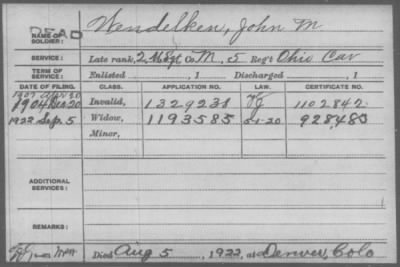 DEAD
NAME OF SOLDIER: Wendelken, John M
SERVICE: Late rank, 2. M Sgt Co. M, 5 Reg't Ohio Cav
TERM OF SERVICE: Enlisted , 1 Discharged , 1
DATE OF FILING. CLASS. APPLICATION NO. LAW. CERTIFICATE NO.
1904 20 Invalid, 1329231 1102842
1922 Sep. 5 Widow, 1193585 5-1-20 928,480
Minor,
ADDITIONAL SERVICES:
REMARKS:
Died Aug 5, 1922, at Denver, Colo